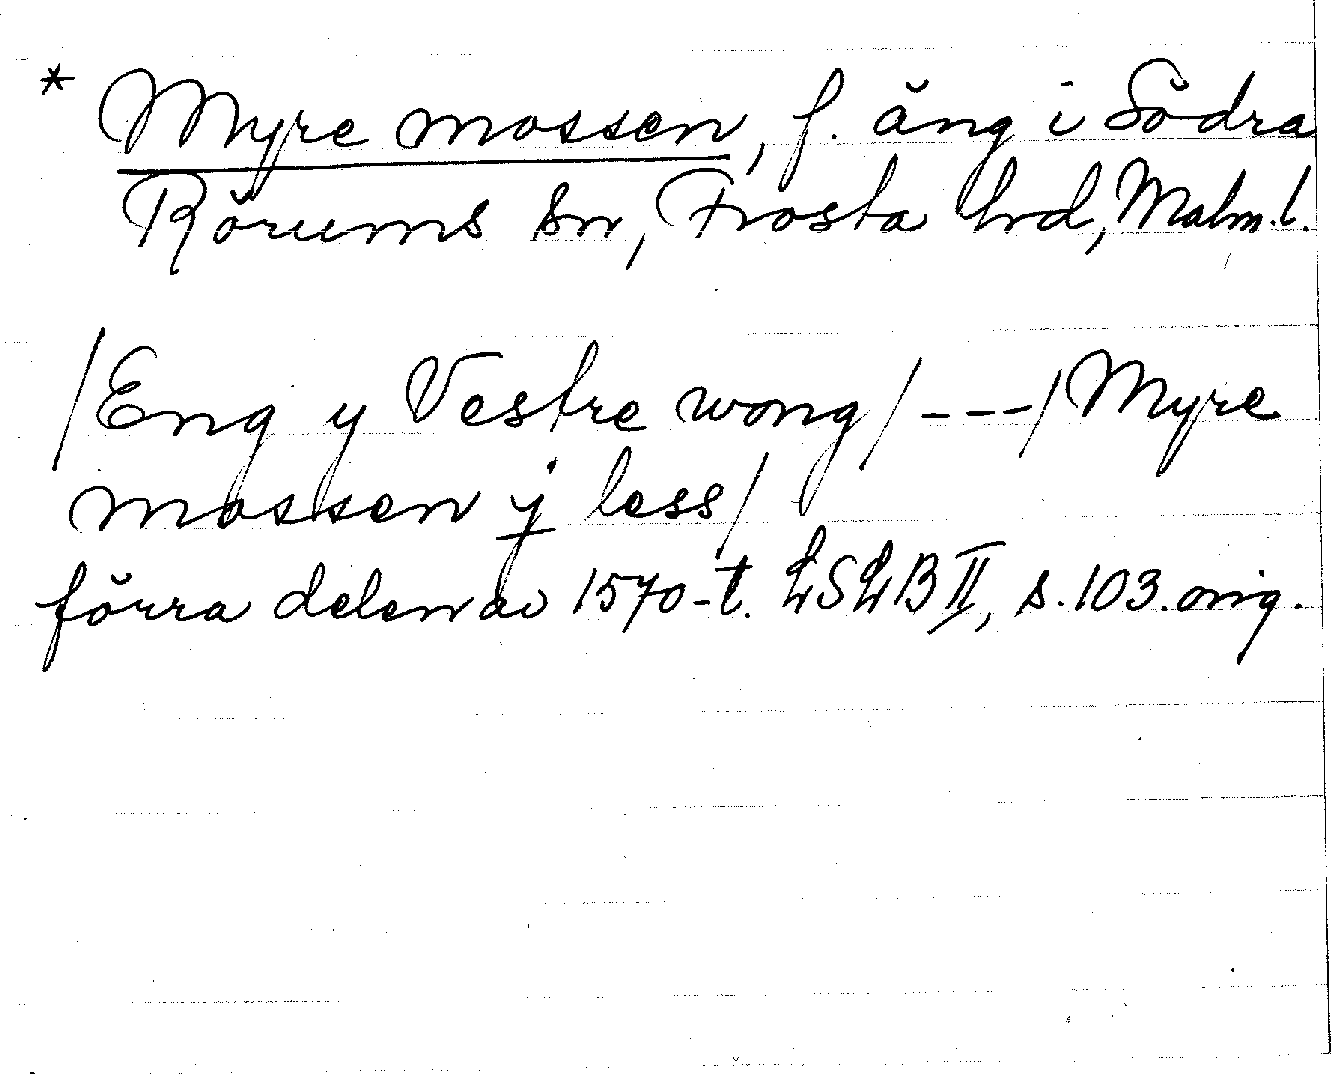 * Myre mossen, f. äng i Södra
Rörums sn, Frosta hrd, Malm. l.
/Eng y Vestre wong/---/Myre
mossen j less/
förra delen av 1570-t. LSLB II, s. 103. orig.